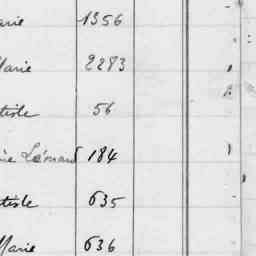 arie 1356
Marie 2283
tiste 56
ie Léonard 184
tiste 635
Marie 636